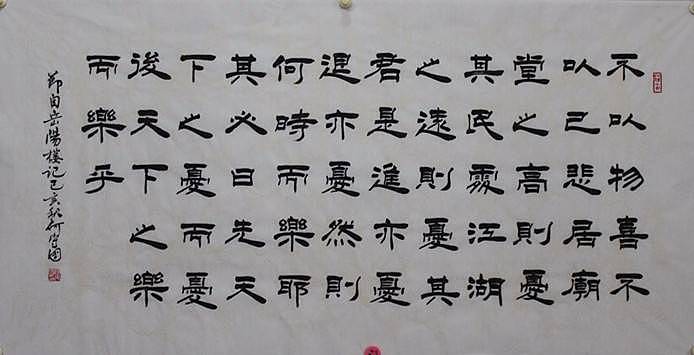 不以物喜不
以己悲居廟
堂之高則憂
其民處江湖
之遠則憂其
君是進亦憂
退亦憂然則
何時而樂耶
其必曰先天
下之憂而憂
後天下之樂
而樂乎
節自岳陽樓記己亥秋何